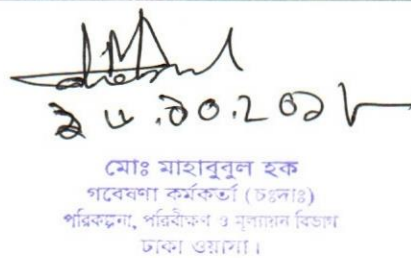 মোঃ মাহাবুবুল হক
গবেষণা কর্মকর্তা (চঃদাঃ)
পরিকল্পনা, পরিবীক্ষণ ও মূল্যায়ন বিভাগ
ঢাকা ওয়াসা।